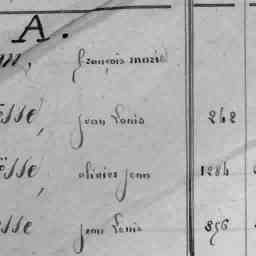 A.
m, françois marie
esse, jean Louis 242
ësse, olivier jean 1284
esse jean Louis 356